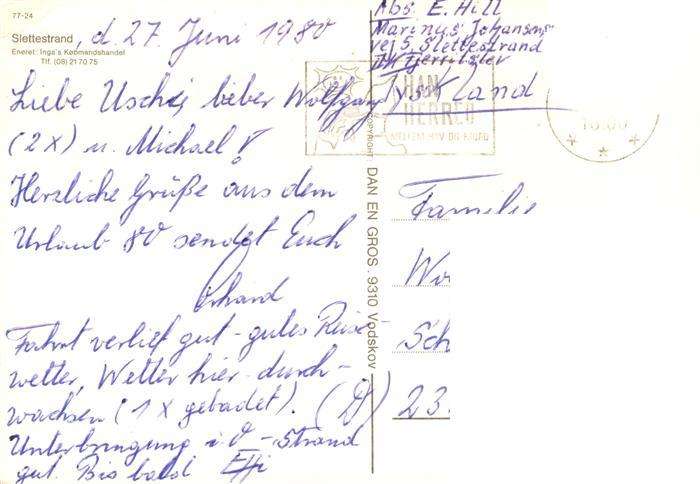 77-24
Slettestrand
Eneret: Inga's Købmandshandel
Tlf. (08) 21 70 75
, d. 27. Juni 1980
Liebe Uschi, lieber Wolfgang
(2x) u. Michael!
Herzliche Grüße aus dem
Urlaub 80 sendet Euch
Erhard
Fahrt verlief gut - gutes Reise-
wetter, Wetter hier durch-
wachsen (1x gebadet).
Unterbringung i. O. - Strand
gut. Bis bald Effi
COPYRIGHT DAN EN GROS. 9310 Vodskov
Abs. E. Hill
Marinus Johansens
vej 5, Slettestrand
Fjerritslev
Jylland
HAN
HERRED
MELLEM HAV OG FJORD
Familie
Wo
Sch
(D) 23.